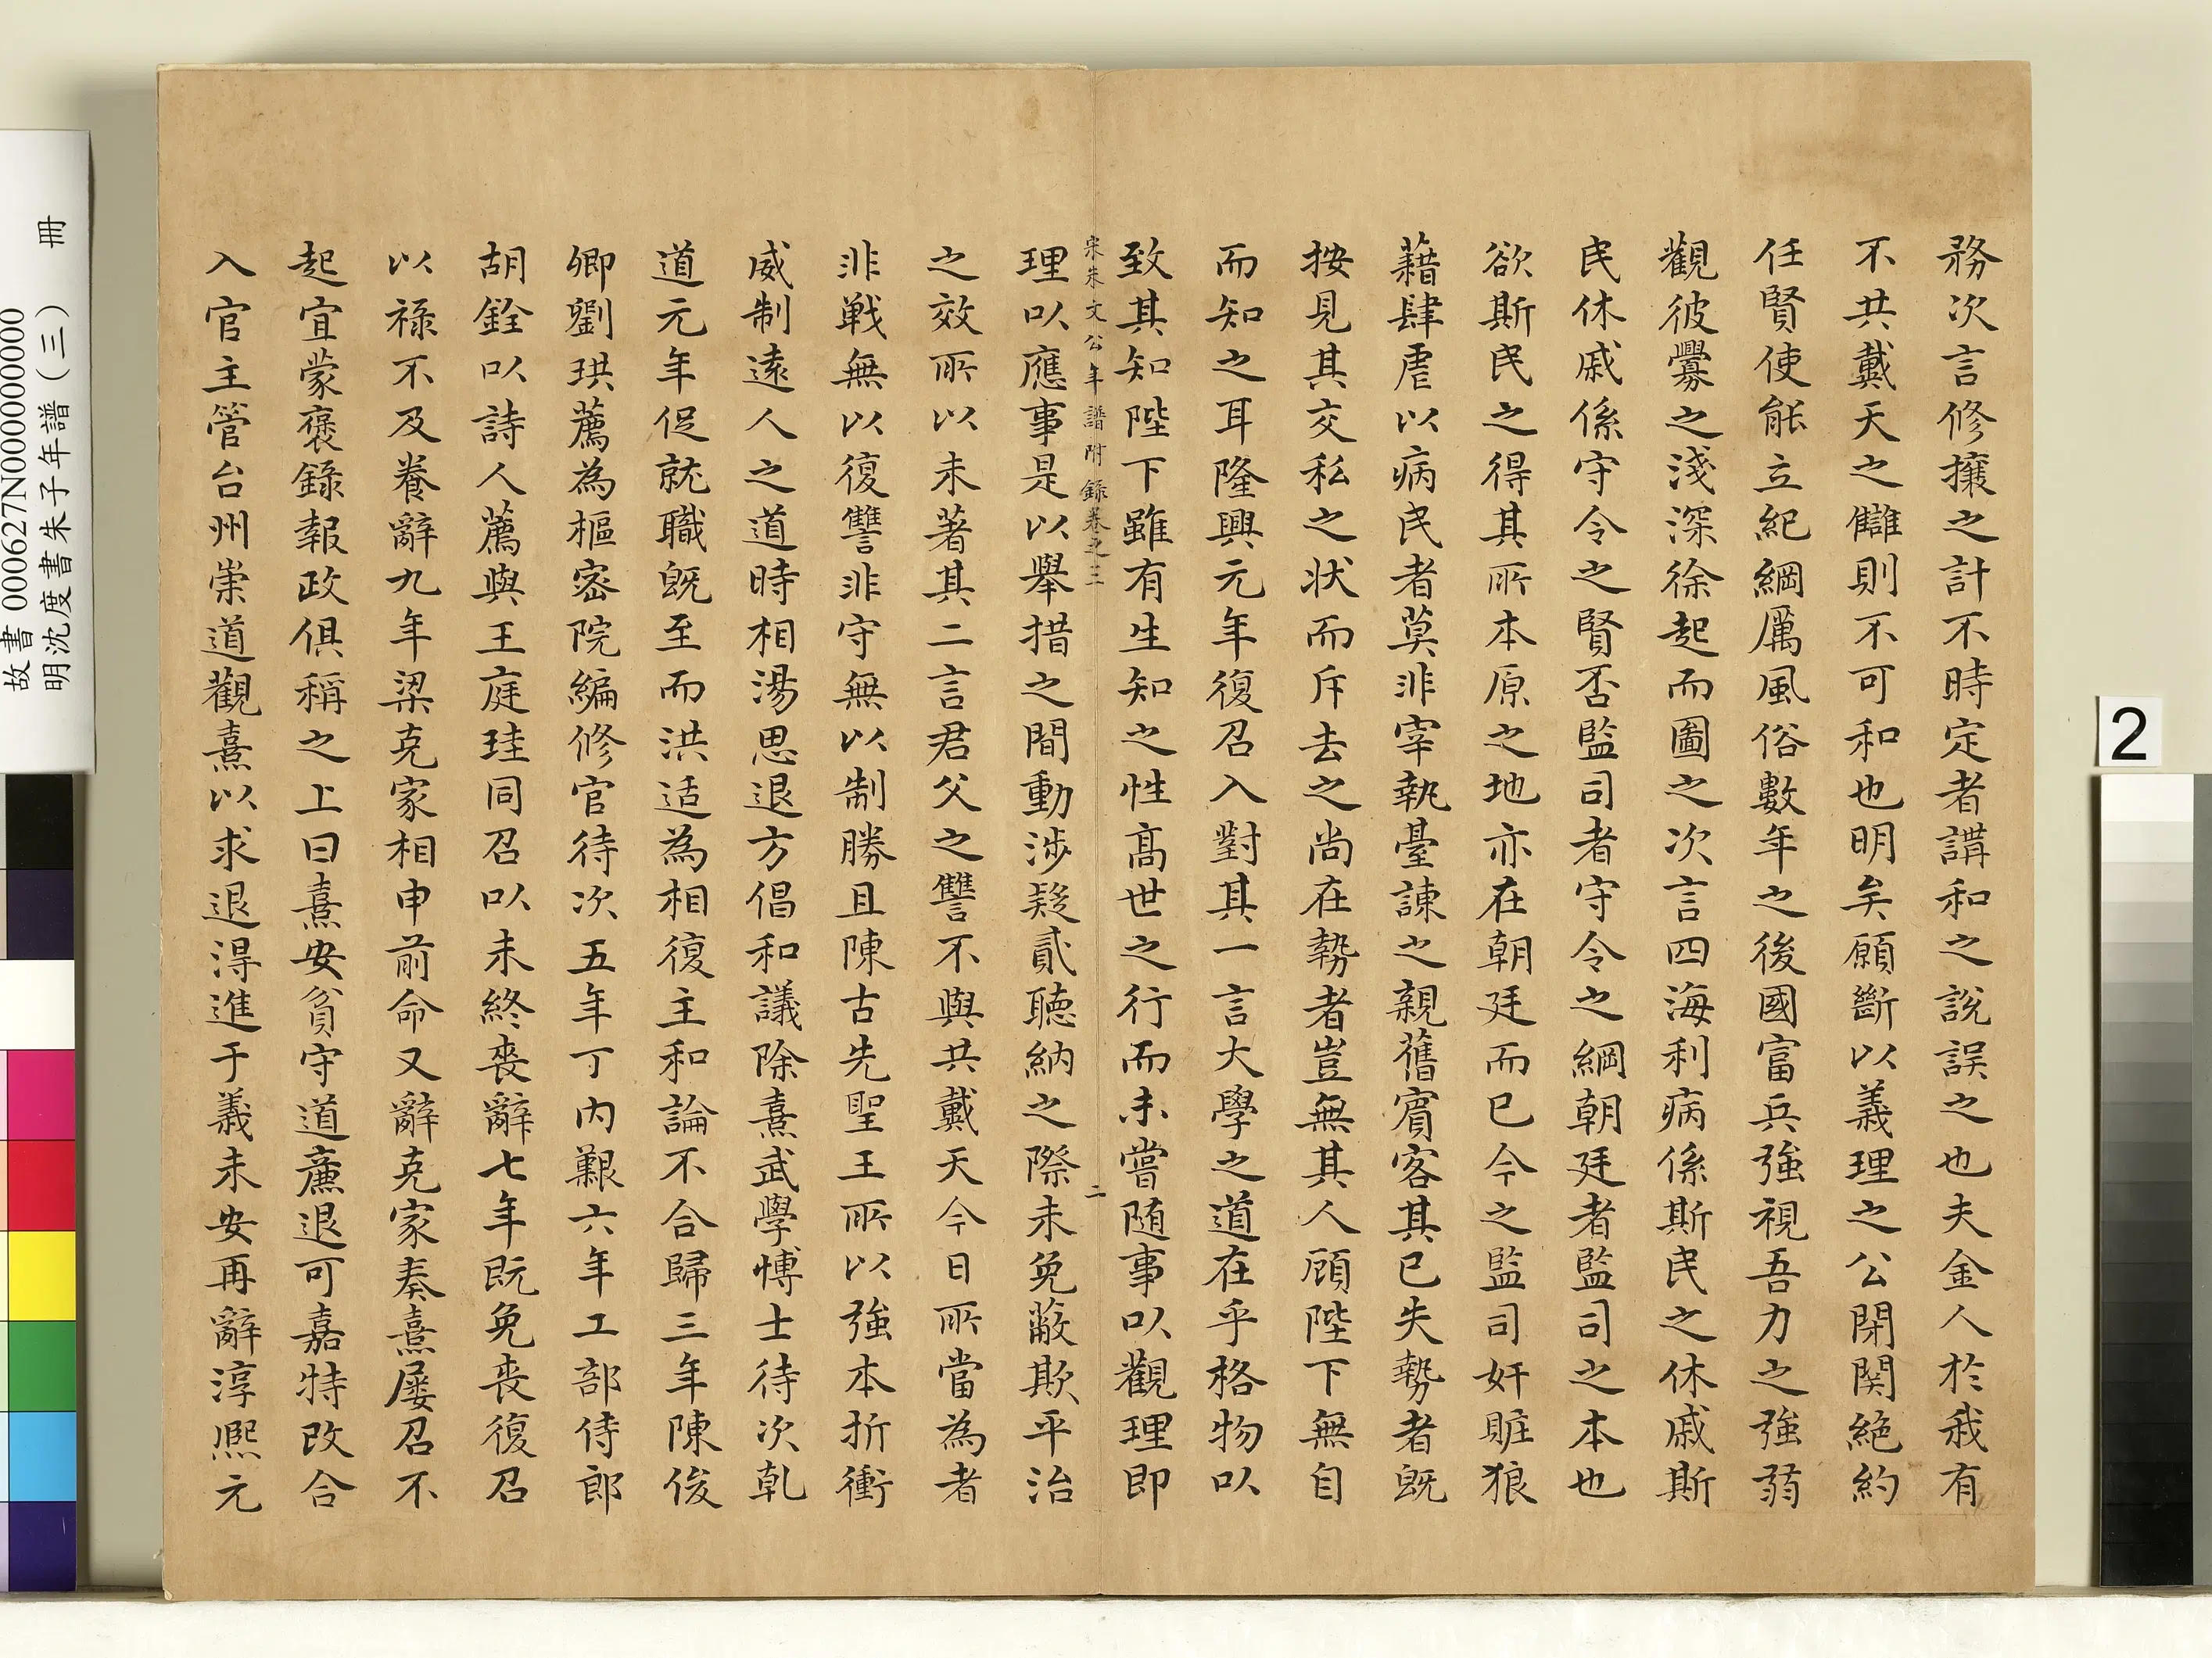 務次言修攘之計不時定者講和之說誤之也夫金人於我有
不共戴天之讎則不可和也明矣願斷以義理之公閉関絕約
任賢使能立紀綱厲風俗數年之後國富兵強視吾力之強弱
觀彼釁之淺深徐起而圖之次言四海利病係斯民之休戚斯
民休戚係守令之賢否監司者守令之綱朝廷者監司之本也
欲斯民之得其所本原之地亦在朝廷而已今之監司奸賍狼
藉肆虐以病民者莫非宰執臺諫之親舊賓客其已失勢者既
按見其交私之狀而斥去之尚在勢者豈無其人顧陛下無自
而知之耳隆興元年復召入對其一言大學之道在乎格物以
致其知陛下雖有生知之性高世之行而未嘗随事以觀理即
宋朱文公年譜附錄卷之三
二
理以應事是以舉措之間動涉疑貳聽納之際未免蔽欺平治
之效所以未著其二言君父之讐不與共戴天今日所當為者
非戦無以復讐非守無以制勝且陳古先聖王所以強本折衝
威制遠人之道時相湯思退方倡和議除熹武學博士待次乾
道元年促就職既至而洪适為相復主和論不合歸三年陳俊
卿劉珙薦為樞密院編修官待次五年丁内艱六年工部侍郎
胡銓以詩人薦與王庭珪同召以未終喪辭七年既免喪復召
以祿不及養辭九年梁克家相申前命又辭克家奏熹屢召不
起宜蒙褒錄報政俱稱之上曰熹安貧守道廉退可嘉特改合
入官主管台州崇道觀熹以求退得進于義未安再辭淳熙元
2
故書 000627N000000000
明沈度書朱子年譜(三) 冊